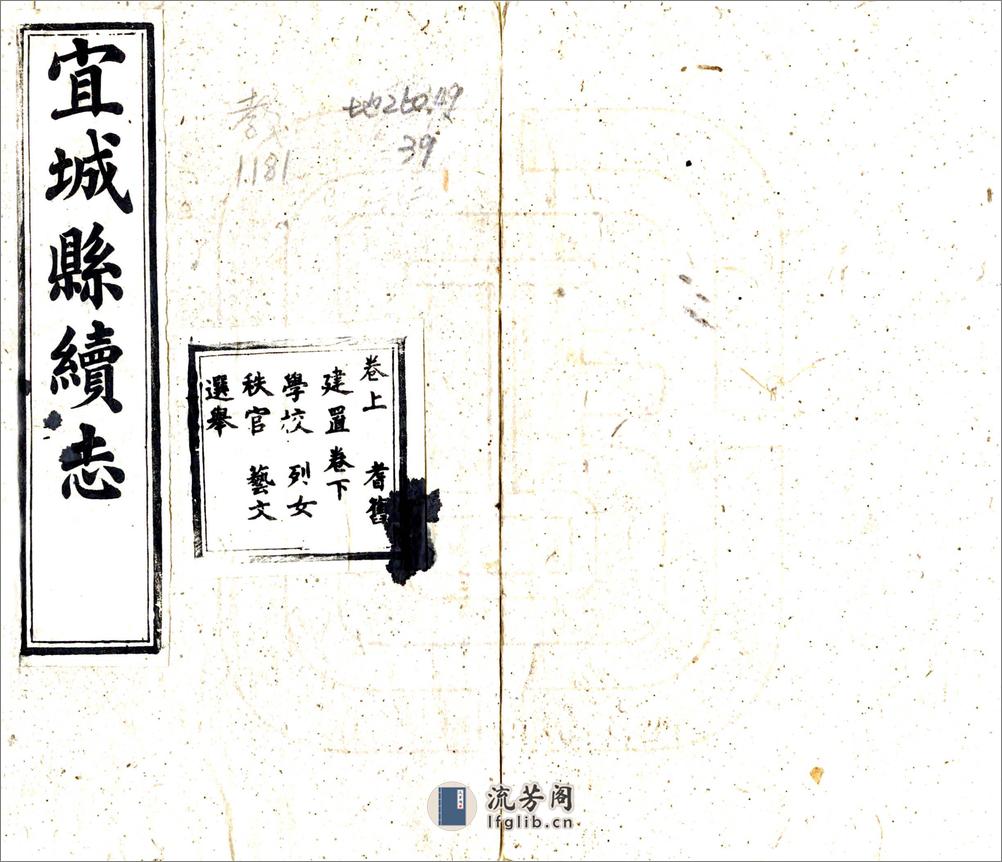 宜城縣續志
卷上 耆舊
建置 卷下
學校 列女
秩官 藝文
選舉
39
1181
流芳阁
lfglib.cn